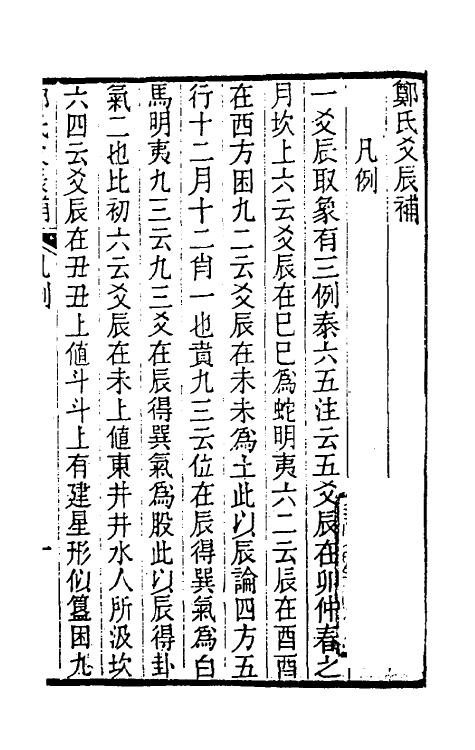 鄭氏爻辰補
凡例
一爻辰取象有三例泰六五注云五爻辰在卯仲春之
月坎上六云爻辰在巳巳爲蛇明夷六二云辰在酉酉
在西方困九二云爻辰在未未爲土此以辰論四方五
行十二月十二肖一也賁九三云位在辰得巽氣爲白
馬明夷九三云九三爻在辰得巽氣爲股此以辰得卦
氣二也比初六云爻辰在未上値東井井水人所汲坎
六四云爻辰在丑丑上値斗斗上有建星形似簋困九
鄭氏爻辰補
凡例
一